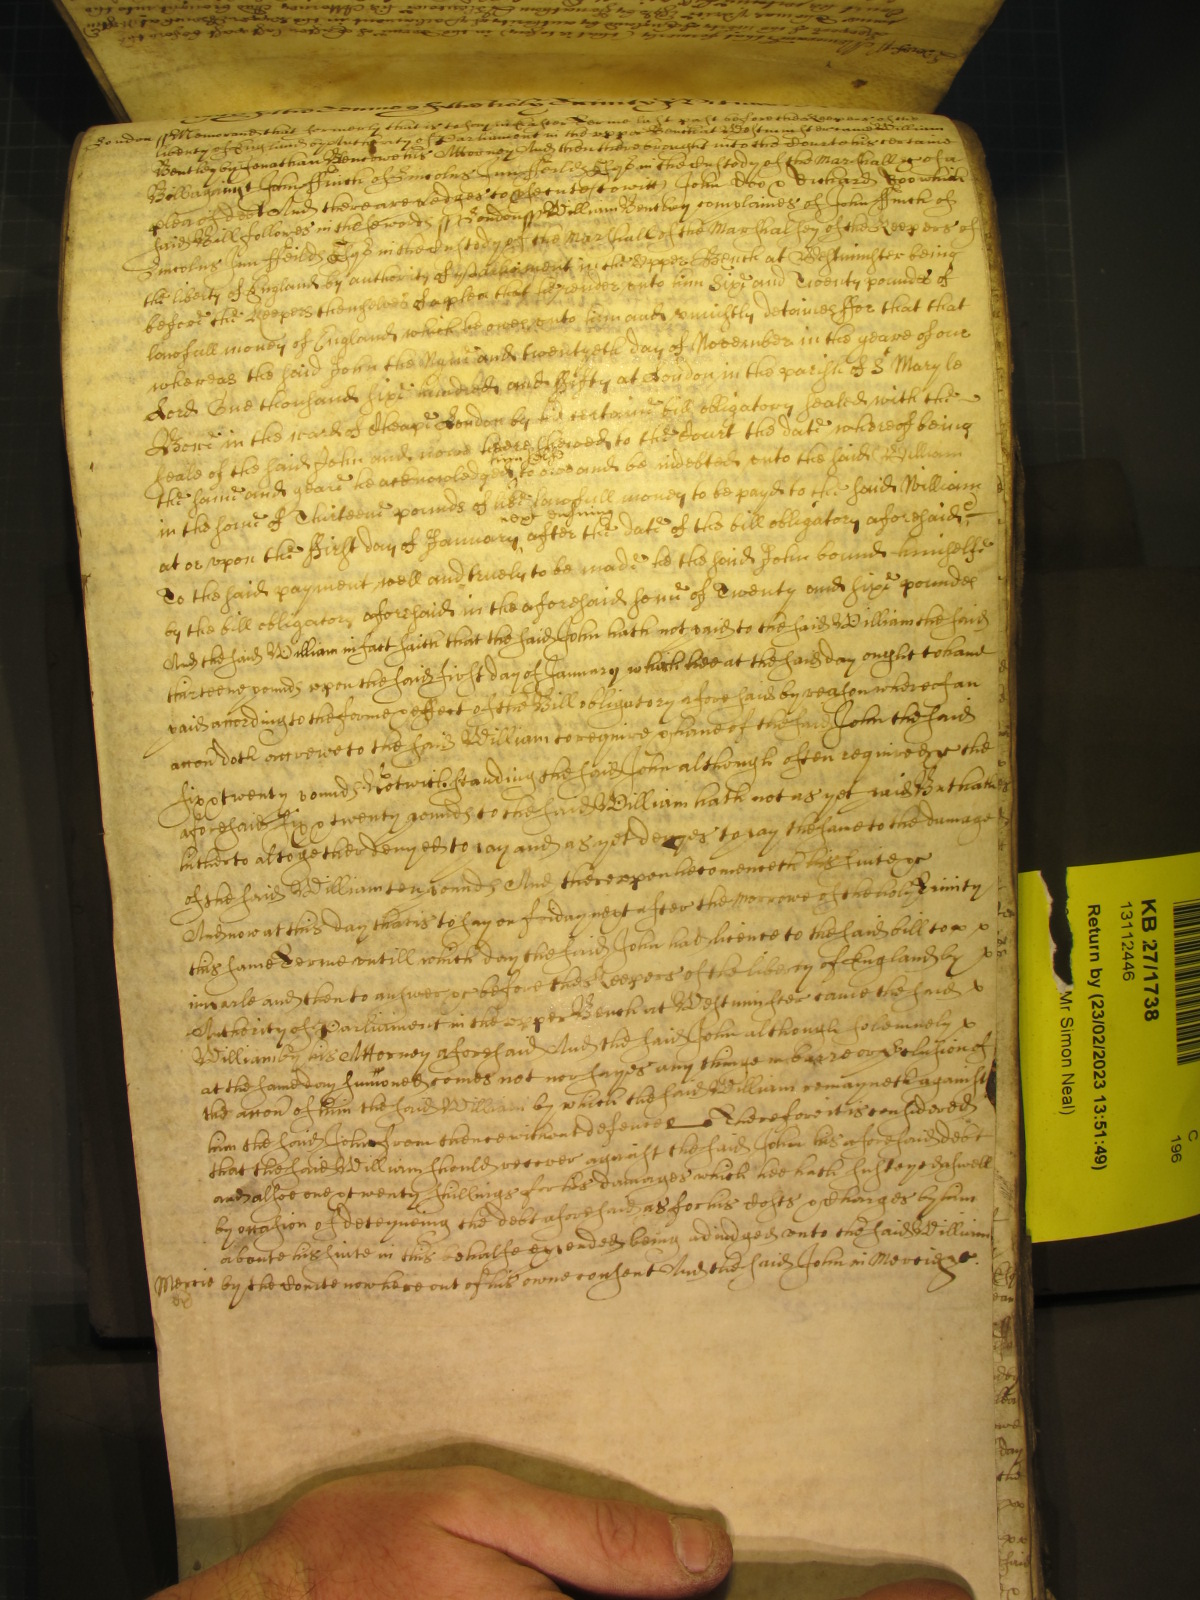 London ss Memorand that formerly that is to say in Easter Terme last past before the Keepers of the
liberty of England by Authority of Parliament in the upper Bench at Westminster came William
Bentley by Jonathan his Attorney And then there brought into the Court his certaine
Bill against John Ffinch of Lincolns Inn Ffeilds Esqr in the Custody of the Marshall &c of a
plea of debt And there are pledges to prosecute (to witt) John Doo & Richard Roo which
said Bill followes in these words ss London ss William Bentley complaines of John Ffinch of
Lincolns Inn Ffeilds Esqr in the Custody of the Marshall of the Marshalsey of the Keepers of
the liberty of England by authority of Parliament in the Upper Bench at Westminster being
before the Keepers themselves of a plea that he render unto him Sixe and Twenty pounds of
lawfull money of England which he owes unto him and uniustly detaines Ffor that that
whereas the said John the Nyne and twentyeth day of November in the yeare of our
Lord One thousand sixe hundred and Ffifty at London in the parish of St Mary le
Bowe in the ward of Cheape London by his certaine bill obligatory sealed with the
seale of the said John and nowe heere shewed to the Court the date whereof being
the same day and yeare he acknowledged himselfe to owe and be indebted unto the said William
in the some of Thirteene pounds of like lawfull money to be payd to the said William
at or upon the Ffirst day of January next ensuing after the date of the bill obligatory aforesaid
To the said payment well and truely to be made he the said John bound himselfe
by the bill obligatory aforesaid in the aforesaid some of Twenty and sixe pounds
And the said William in fact saith that the said John hath not paid to the said William the said
thirteene pounds upon the said first day of January which hee at the said day ought to have
paid according to the forme & effect of the Bill obligatory aforesaid by reason whereof an
accon doth accrewe to the said William to require & have of the said John the said
six & twenty pounds Notwithstanding the said John although often required &c the
aforesaid six & twenty pounds to the said William hath not as yet paid But hath
hitherto altogether denyed to pay and as yet denyes to pay the same to the damage
of the said William ten pounds And thereupon he comenceth his suite &c
And now at this day that is to say on friday next after the Morrowe of the holy Trinity
this same Terme untill which day the said John had licence to the said bill to
imparle and then to answer &c before the Keepers of the liberty of England by
Authority of Parliament in the upper Bench at Westminster came the said
William by his Attorney aforesaid And the said John although solemnely
at the same day summoned comes not nor sayes any thinge in barre or Preclusion of
the accon of him the said William by which the said William remayneth against
him the said John from thence without defence Therefore it is considered
that the said William should recover against the said John his aforesaid debt
and alsoe one & twenty shillings for his damages which hee hath susteyned aswell
by occasion of deteyneing the debt aforesaid as for his Costs & Charges by him
aboute his suite in this behalfe expended being adiudged unto the said William
Mercie by the Courte now here out of his owne consent And the said John in Mercie &c.
KB 27/1738
13112446
Return by (23/02/2023 13:51:49)
Mr Simon Neal)
C
196